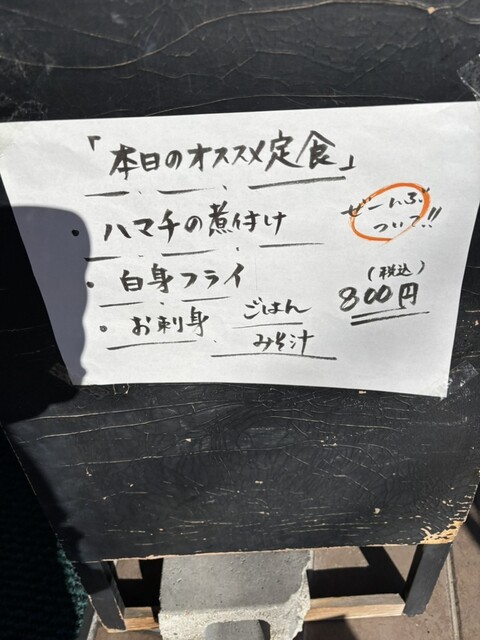 「本日のオススメ定食」
・ハマチの煮付け
ぜーんぶ
ついて!!
・白身フライ
・お刺身
ごはん
みそ汁
(税込)
800円